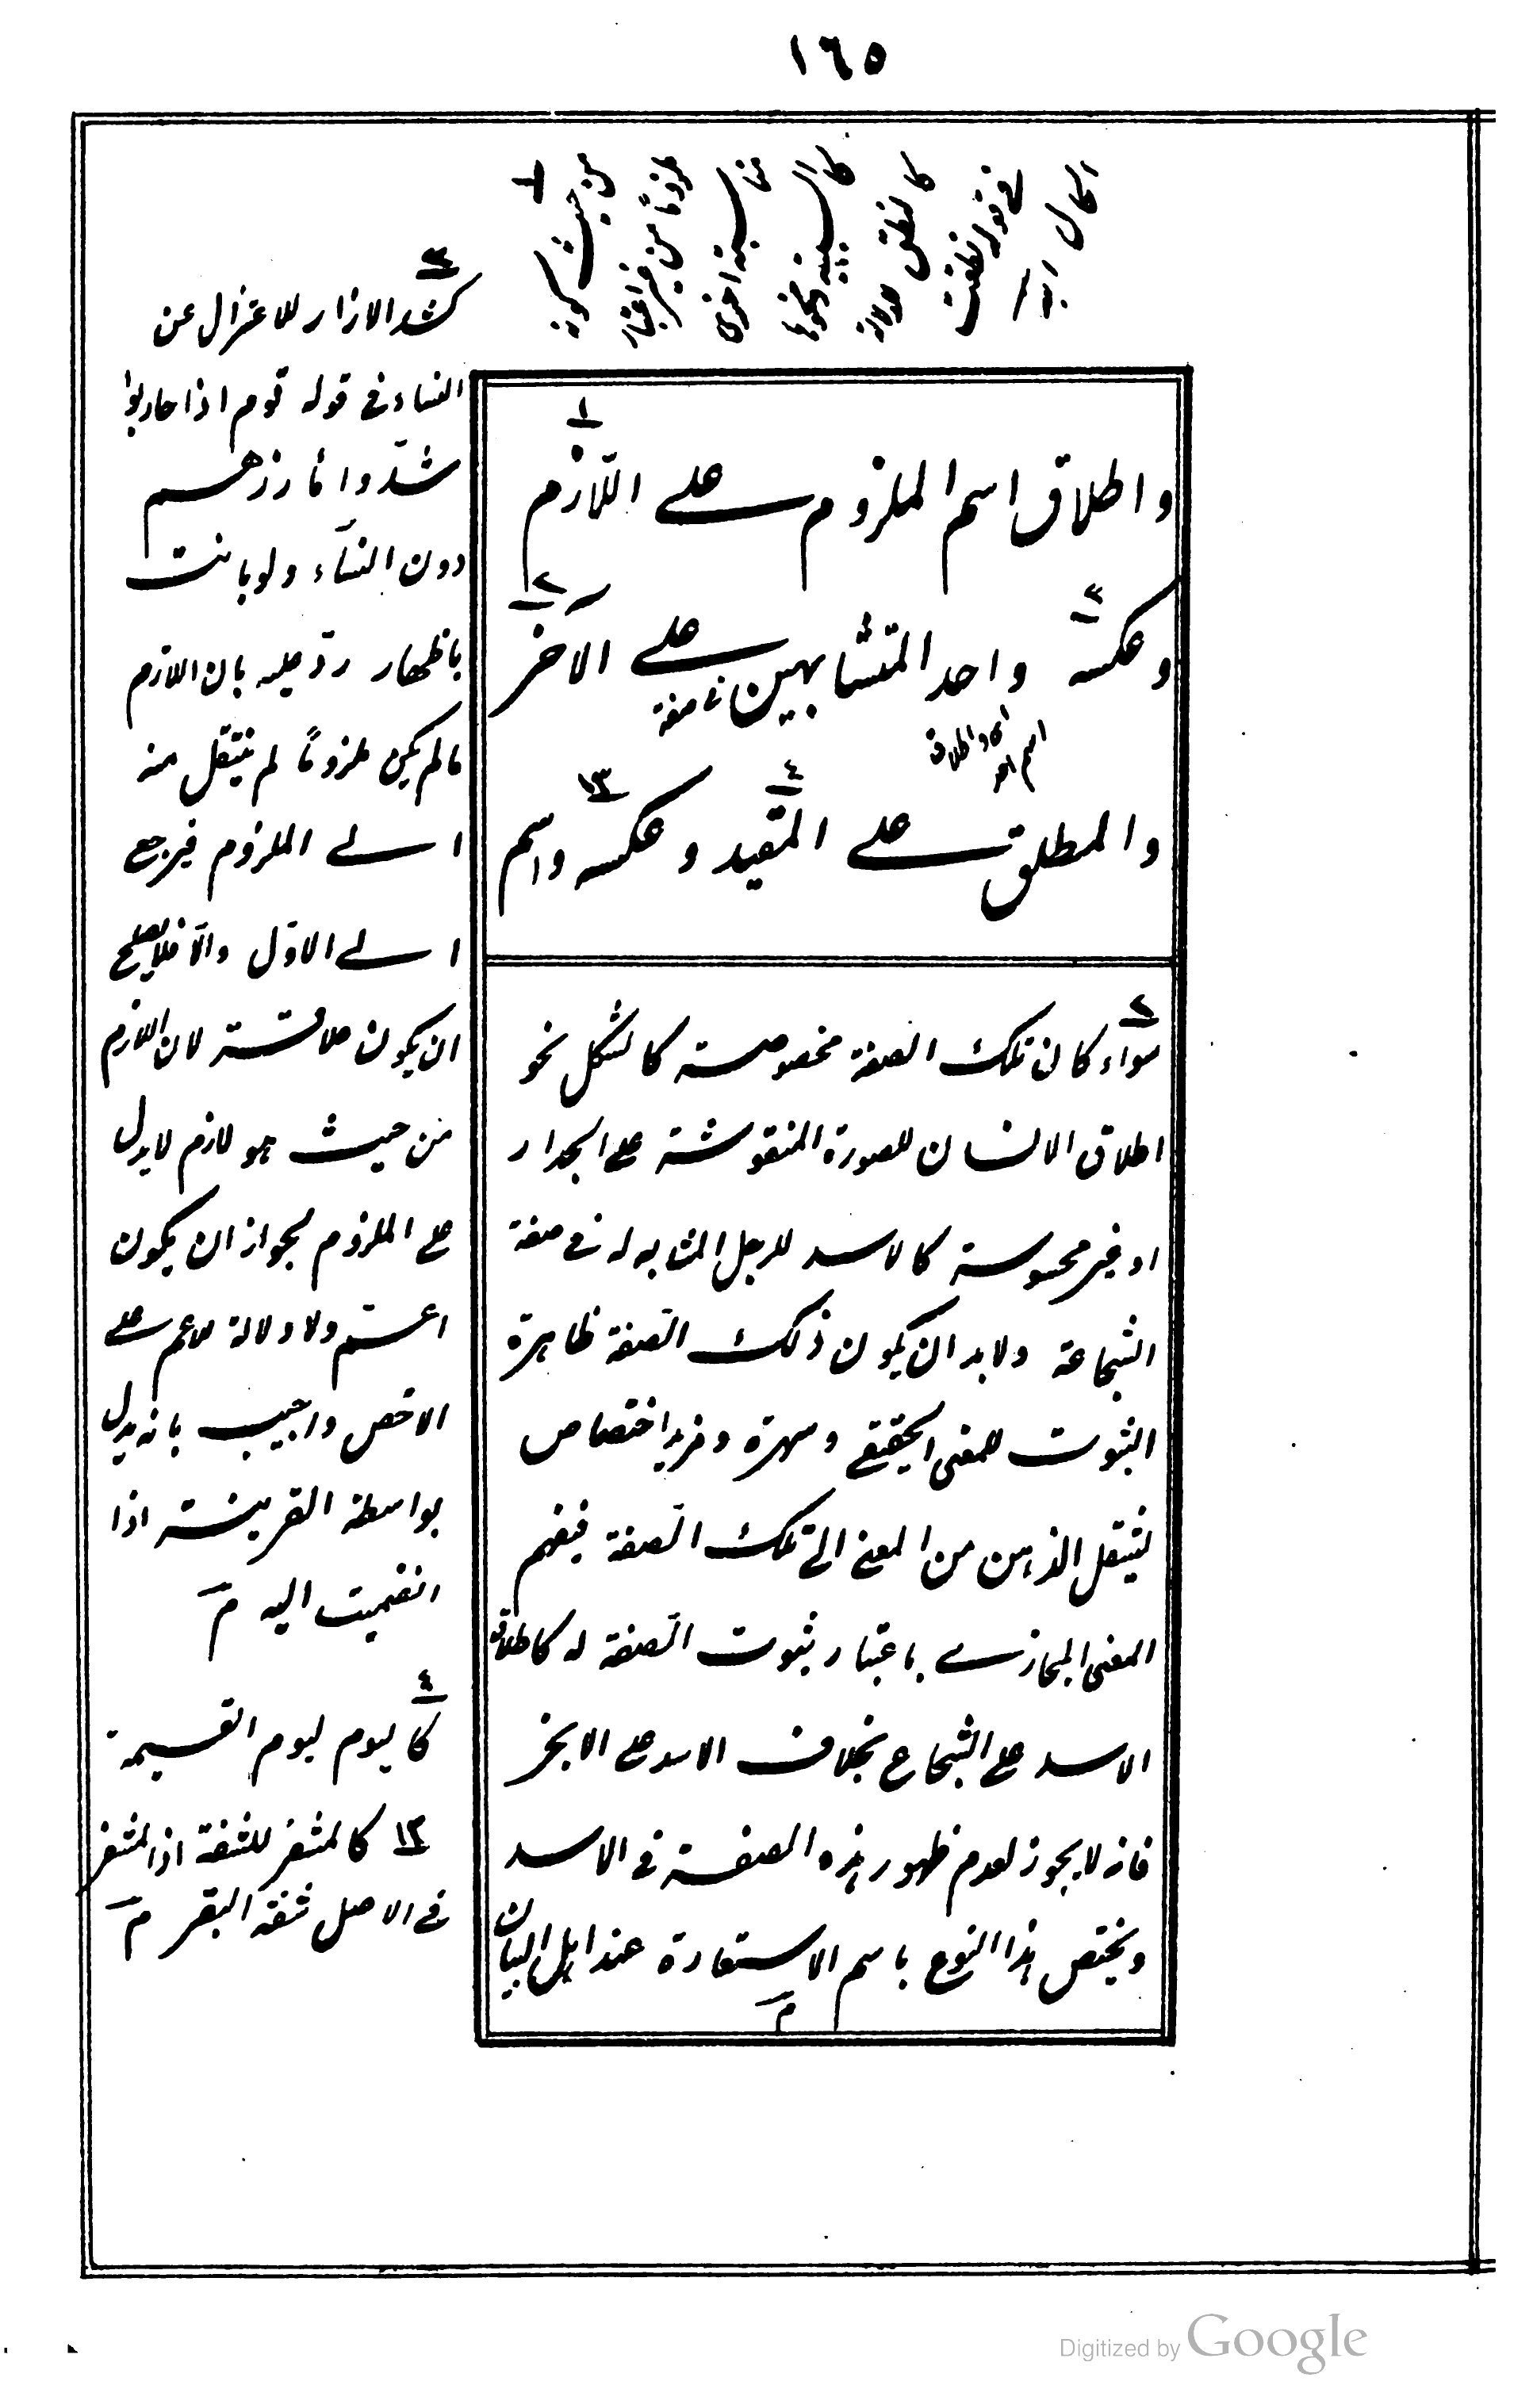 ١٦٥
١
من حيث كونه
ملزوماً من غير اعتبار
مناسبة اخرى
كالسببية ونحوها
كالنطق للدلالة
في قوله نطقت
الحال بكذا
واطلاق اسم الملزوم على اللازم
وعكسه واحد المتشابهين على الآخر
في صفة
والمطلق على المقيد وعكسه واسم
٢
سواء كان تلك الصفة مخصوصة كالشكل نحو
اطلاق الانسان للصورة المنقوشة على الجدار
او غير محسوسة كالاسد للرجل المشابه له في صفة
الشجاعة ولابد ان يكون ذلك الصفة ظاهرة
الثبوت للمعنى الحقيقي وشهرة ومزيد اختصاص
لينتقل الذهن من المعنى الى تلك الصفة فيفهم
المعنى المجازي باعتبار ثبوت الصفة له كاطلاق
الاسد على الشجاع بخلاف الاسد على الابخر
فانه لا يجوز لعدم ظهور هذه الصفة في الاسد
ويختص هذا النوع باسم الاستعارة عند اهل البيان
م
كشد الازار للاعتزال عن
النساء في قوله قوم اذا حاربوا
شدّوا مآزرهم
دون النسآء ولو باتت
باطهار ردّ عليه بان اللازم
ما لم يكن ملزوماً لم ينتقل منه
الى الملزوم فيرجع
الى الاوّل والّا فلا يصلح
ان يكون علاقة لان اللازم
من حيث هو لازم لا يدل
على الملزوم لجواز ان يكون
اعمّ ولا دلالة للاعم على
الاخص واجيب بانه يدل
بواسطة القرينة اذا
انضمت اليه م
٤
كاليوم ليوم القيمة
١٣ كالمشفر للشفة اذ المشفر
في الاصل شفة البقر م
Digitized by Google